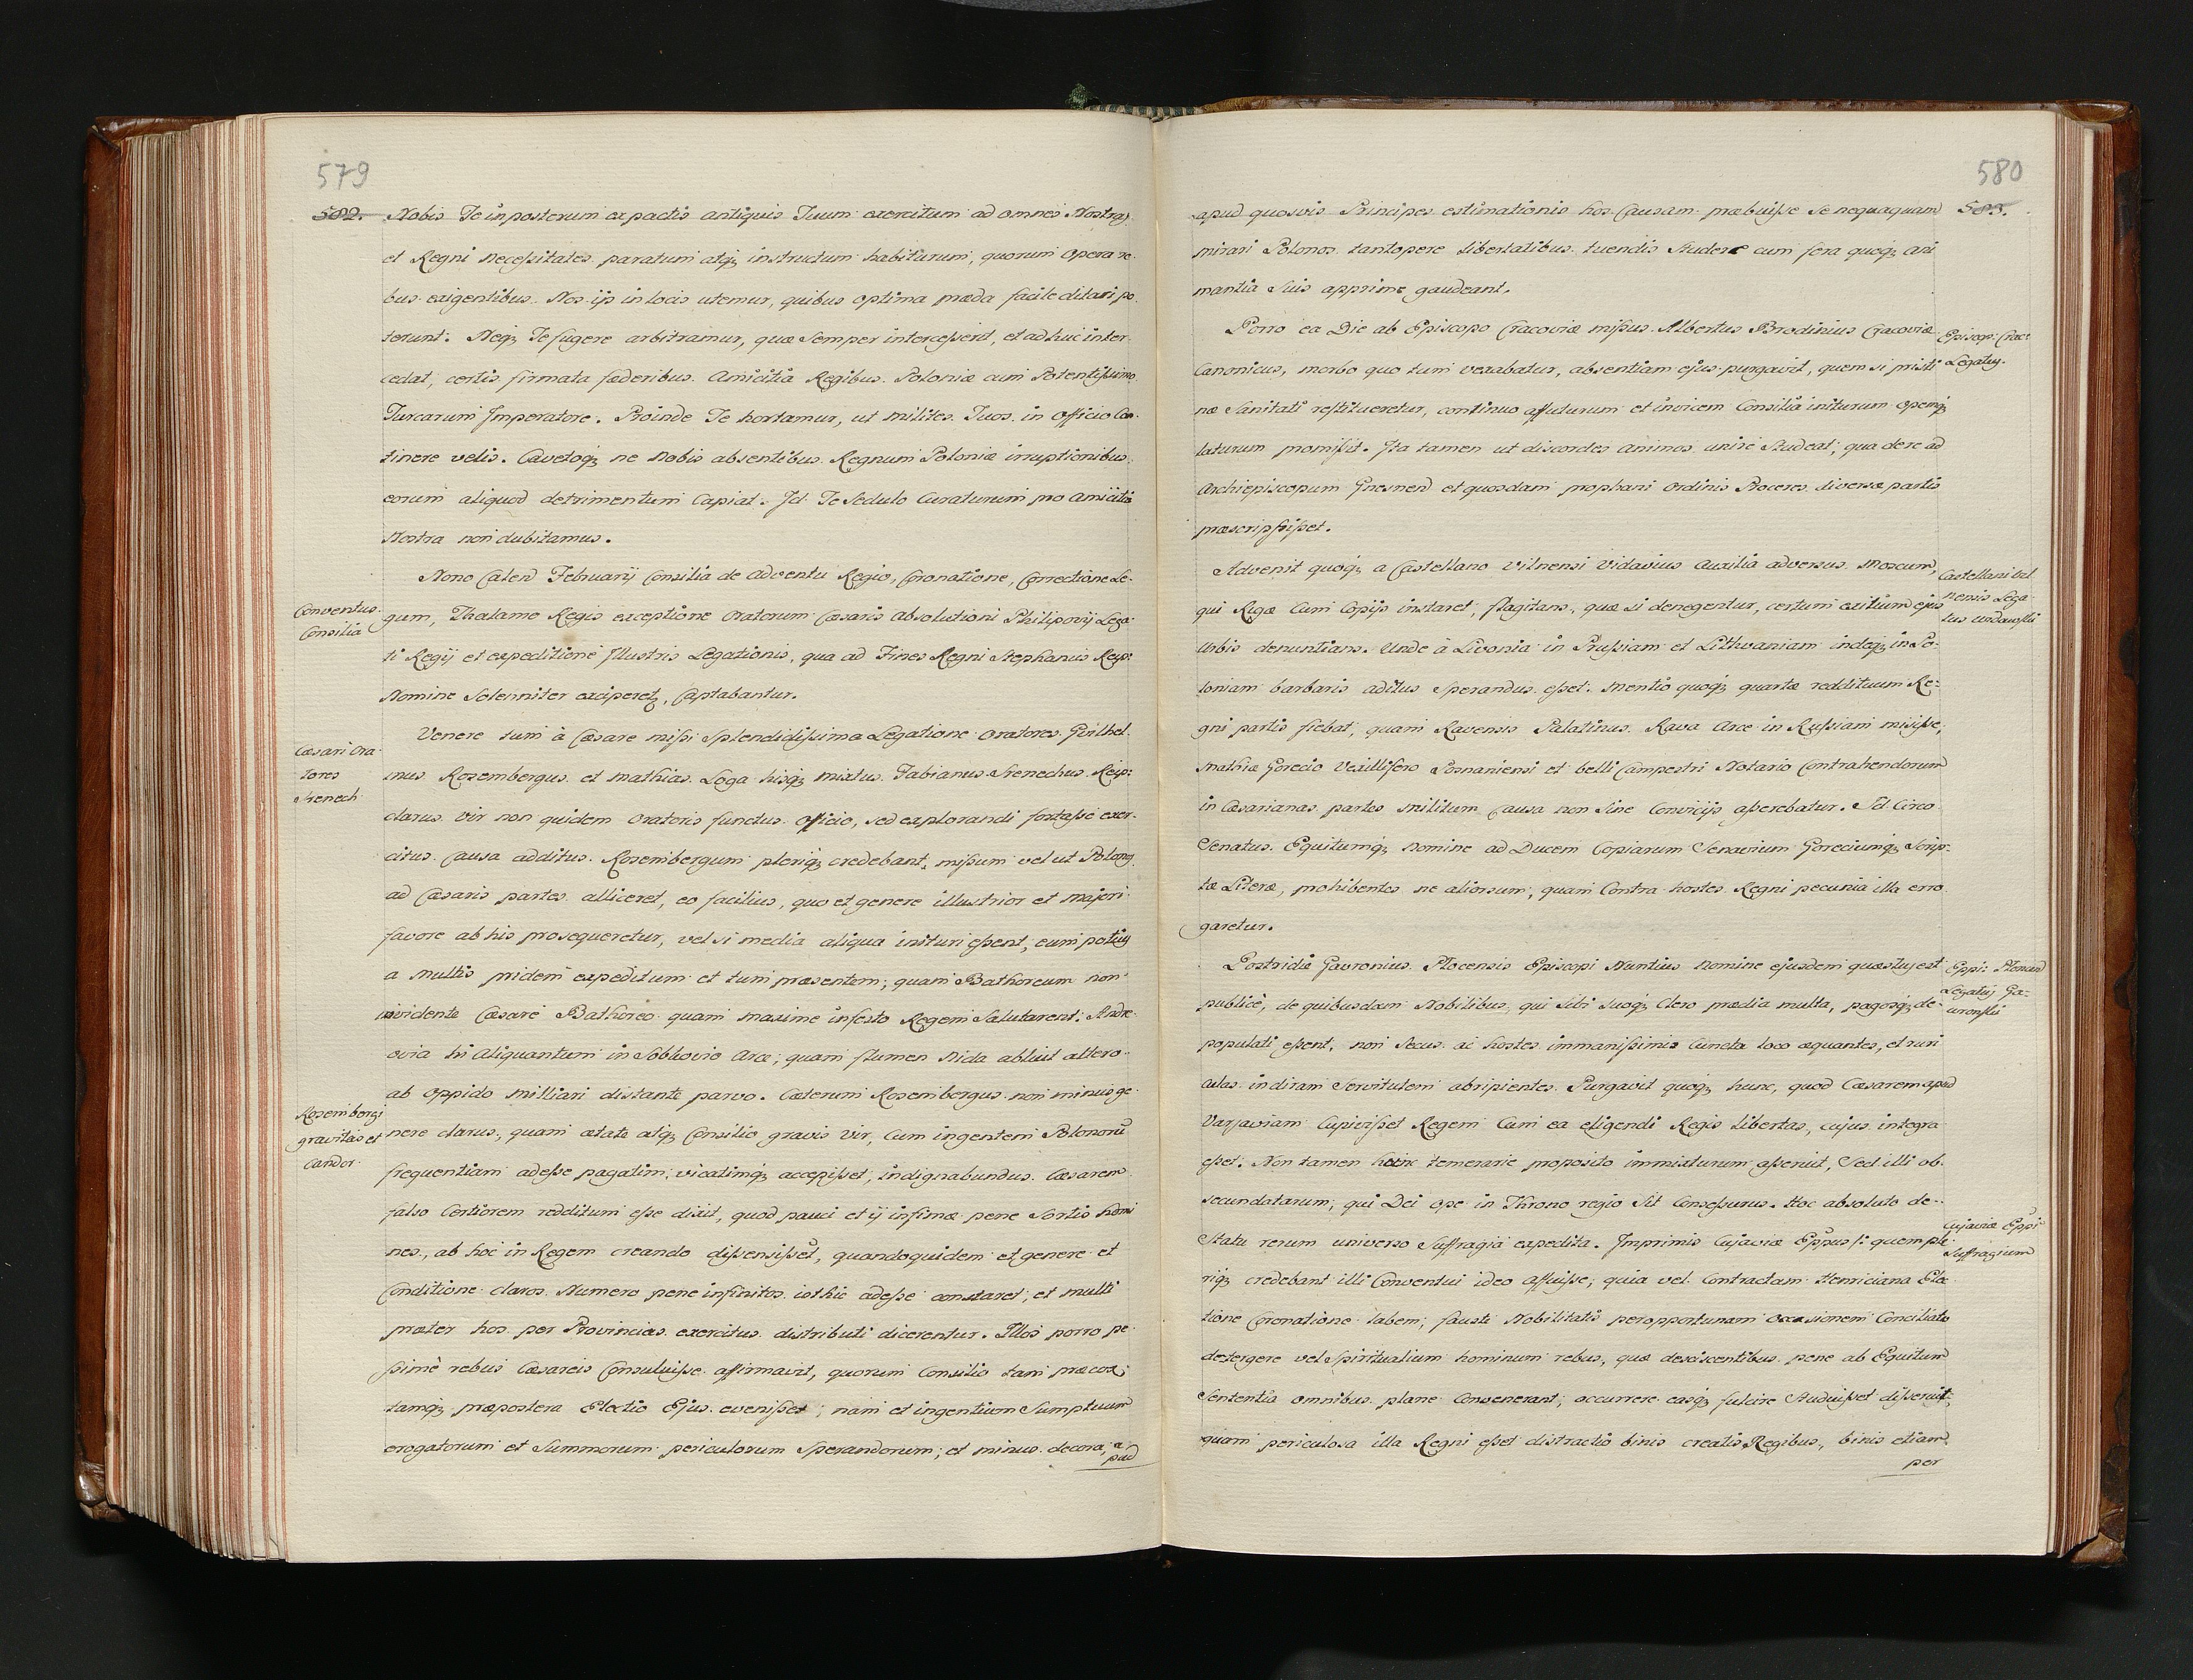 579
582. Nobis Te inposterum ex pactis antiquis Tuum exercitum ad omnes Nostras
et Regni necessitates paratum atq; instructum habiturum, quorum opera re-
bus exigentibus Nos ijs in locis utemur, quibus optima præda facile ditari po-
terunt: Neq; Te fugere arbitramur, quæ semper intercesserit, et adhuc inter-
cedat, certis firmata fæderibus Amicitia Regibus Poloniæ cum Potentissimo
Turcarum Imperatore. Proinde Te hortamur, ut milites Tuos in officio Con-
tinere velis. Cavetoq; ne Nobis absentibus Regnum Poloniæ irruptionibus
eorum aliquod detrimentum Capiat. Id Te Sedulo Curaturum pro Amicitia
Nostra non dubitamus.
Nono Calend Februarij Consilia de Adventu Regio, Coronatione, Correctione Le-
Conventus
Consilia
gum, Thalamo Regis exceptione Oratorum Cæsaris Absolutioni Philipovij Lega-
ti Regij et expeditione Illustris Legationis, qua ad Fines Regni Stephanus Reip:
Nomine Solenniter exciperet, Captabantur.
Venere tum à Cæsare missi splendidissima Legatione Oratores Guilhel-
Cæsari Ora-
tores
Srenech
mus Rosembergus et Mathias Loga hisq; mixtus Fabianus Srenechus Reip:
clarus Vir non quidem oratoris functus officio, sed explorandi fortasse exer-
citus Causa additus. Rosembergum pleriq; credebant, missum vel ut Polonos
ad Cæsaris partes alliceret, eo facilius, quo et genere illustrior et majori
favore ab his prosequeretur, vel si media aliqua inituri essent, eum potius
a multis pridem expeditum et tum præsentem, quam Bathoreum non
invidente Cæsare Bathoreo quam maxime infesto Regem Salutarent. Andre-
ovia hi Aliquantum in Sobkovio Arce, quam flumen Nida abluit altero
ab oppido milliari distante parvo. Cæterum Rosembergus non minus ge-
Rosembergi
gravitas et
Candor
nere clarus, quam ætate atq; Consilio gravis vir, Cum ingentem Polonorū
frequentiam adesse pagatim, vicatimq; accepisset, indignabundus Cæsarem
falso Certiorem redditum esse dixit, quod pauci et ij infimæ pene Sortis homi
nes, ab hoc in Regem creando dissensisset, quandoquidem et genere et
Conditione claros Numero pene infinitos isthic adesse constaret, et multi
præter hos per Provincias exercitus distributi dicerentur. Illos porro pe-
ssimè rebus Cæsareis Consuluisse affirmavit, quorum Consilio tam præcox
tamq; præpostera Electio Ejus evenisset; nam et ingentium Sumptuum
erogatorum et Summorum periculorum Sperandorum, et minus decora, a-
pud
580
583.
apud quosvis Principes estimationis hos Causam præbuisse se nequaquam
mirari Polonos tantopere libertatibus tuendis Studere cum fera quoq; ani
mantia Suis apprime gaudeant.
Porro ea Die ab Episcopo Cracoviæ missus Albertus Brodinius Cracoviæ
Episcop: Crac:
Legatus
Canonicus, morbo quo tum vexabatur, absentiam ejus purgavit, quem si pristi
næ Sanitati restitueretur, continuo affuturum et invicem Consilia initurum opemq;
laturum promisit. Ita tamen ut discordes animos unire Studeat, qua de re ad
Archiepiscopum Gnesnens et quosdam prophani Ordinis Proceres diversæ partis
præscripsisset.
Advenit quoq; a Castellano Vilnensi Vidavius Auxilia adversus Moscum,
Castellani Vil
nensis Lega
tus
qui Rigæ Cum Copijs instaret, flagitans, quæ si denegentur, certum exitium ejus
Urbis denuntians. Unde à Livonia in Prussiam et Lithvaniam indeq; in Po-
loniam barbaris aditus Sperandus esset. Mentio quoq; quartæ reddituum Re-
gni partis fiebat, quam Ravensis Palatinus Rava Arce in Russiam misisse,
Mathiæ Gorecio Vexillifero Posnaniensi et belli Campestri Notario Contrahendorum
in Cæsarianas partes militum Causa non Sine Convicijs asserebatur. Id Circo
Senatus Equitumq; Nomine ad Ducem Copiarum Senavium Goreciumq; Scrip-
tæ Literæ, prohibentes ne aliorsum, quam Contra hostes Regni pecunia illa erro
garetur.
Postridie Gavronius Plocensis Episcopi Nuntius Nomine ejusdem quæstus est
Eppi:
Legatus Ga-
wronski
publicè, de quibusdam Nobilibus, qui Sibi Suoq; Clero prædia multa, pagosq; de-
populati essent, non Secus ac hostes immanissimis Cuncta loco æquantes, et ruri
culas in diram Servitutem abripientes. Purgavit quoq; hunc, quod Cæsarem apud
Varsaviam Cupivisset Regem Cum ea eligendi Regis libertas, cujus integra
esset. Non tamen temerarie proposito immixturum asseruit, Sed illi ob-
secundaturum, qui Dei ope in Throno regio Sit Consessurus. Hoc absoluto de-
Statu rerum universo Suffragia expedita. Imprimis Cujaviæ Eppus /: quem ple-
Cujaviæ Eppi
Suffragium
riq; credebant illi Conventui ideo affuisse, quia vel Contractam Henriciana Ele-
tione Coronatione labem, fausti Nobilitatis peropportunam occasionem Conciliato
detergere vel Spiritualium hominum rebus, quæ desciscentibus pene ab Equitum
Sententia omnibus plane Convenerant, occurrere easq; fulcire Studuisset disseruit,
quam periculosa illa Regni esset distractio binis creatis Regibus, binis etiam
per